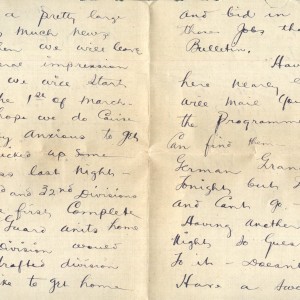 a pretty large
s much news
when we will leave
eral impression
we will start
the 1st of March-
hope we do cause
anxious to get
icked up some
ess last night-
d 32nd Divisions
first complete
Guard units home
Division would
drafted division
ke to get home
and bid in
those jobs tha
Bulletin.
Hav
here nearly
will mail you
the Programme
can find them.
German Gran
Tonight but I
and Cant go -
Having another
Nights so Guess
To it - Doesn't
Have a swe